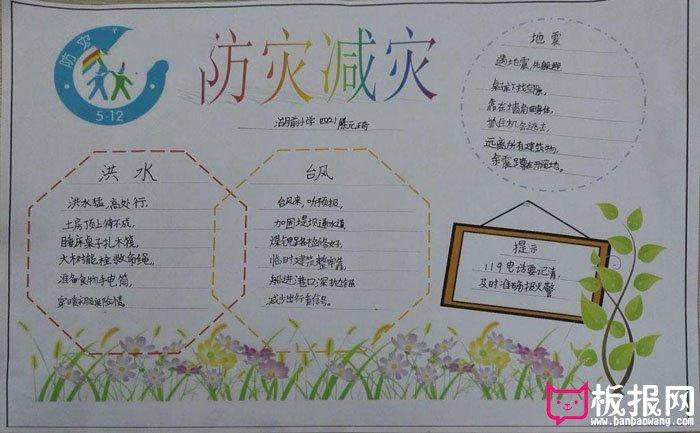 防灾
5-12
防灾减灾
地震
遇地震,先躲避
桌床下找空隙,
靠在墙角曲身体,
抓住机会逃出去,
远离所有建筑物,
余震蹲在开阔地。
洪水
洪水猛,高处行,
土房顶上待不成,
睡床桌子扎木筏,
大树能拴救命绳,
准备食物手电筒,
台风
台风来,听预报,
加固堤坝通水道
煤气电路检修好,
临时建筑整牢靠,
船进港口深抛锚
减少出行看信号。
提示
119电话要记清,
及时准确报火警
板报网
www.banbaowang.com